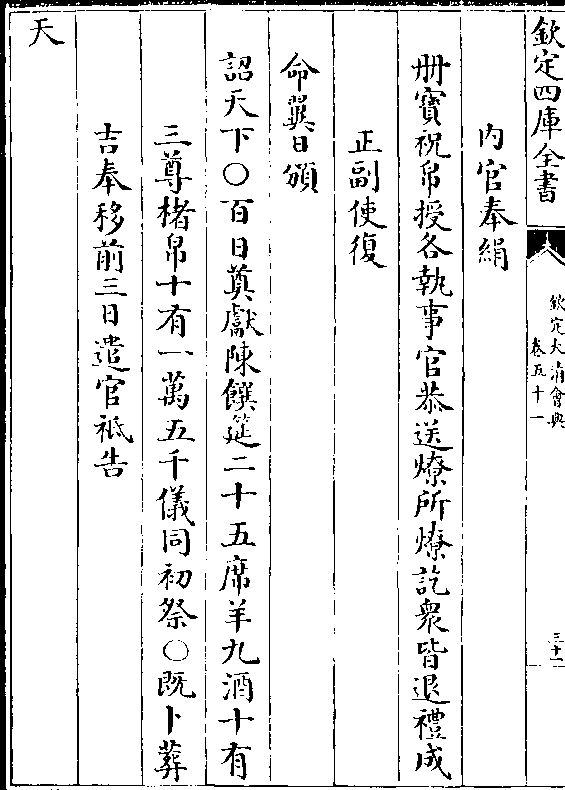 欽定四庫全書
欽定大清會典
卷五十一
三十一
內官奉絹
册寶祝帛授各執事官恭送燎所燎訖衆皆退禮成
正副使復
命翼日頒
詔天下○百日奠獻陳饌筵二十五席羊九酒十有
三尊楮帛十有一萬五千儀同初祭○既卜葬
吉奉移前三日遣官祗告
天